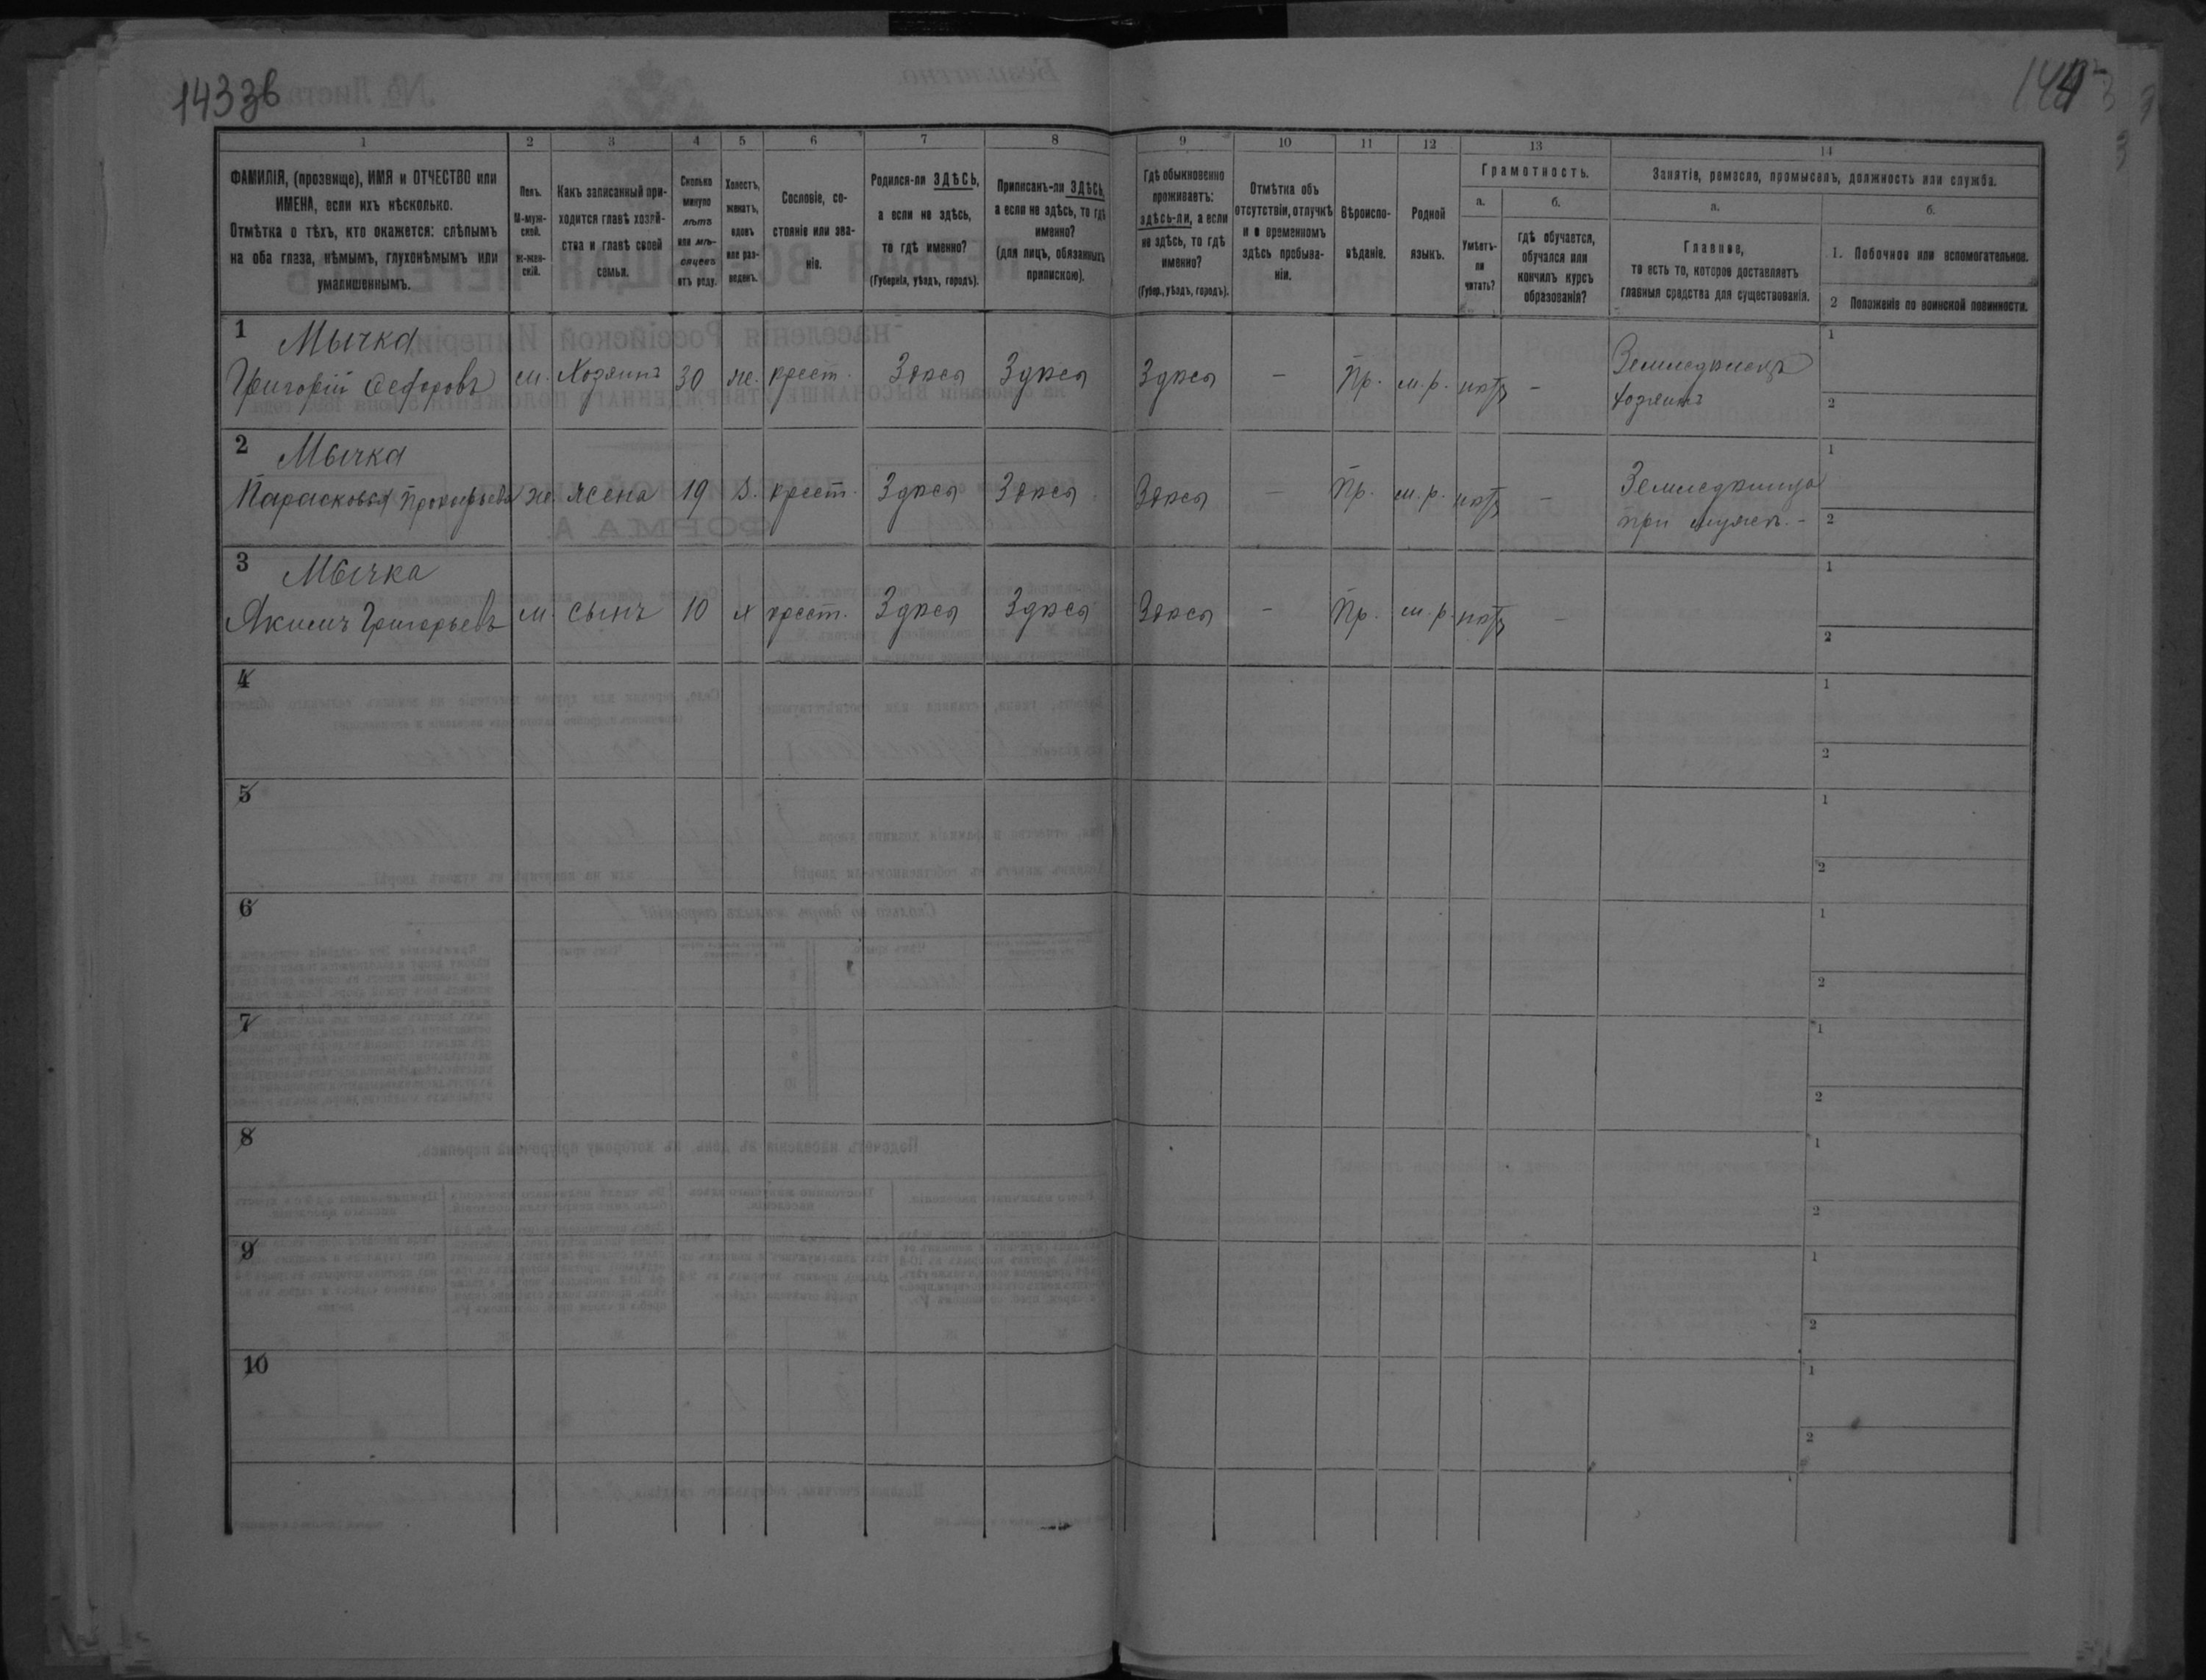 1433б
144
1 2 3 4 5 6 7 8 9 10 11 12 13 14
ФАМИЛІЯ, (прозвище), ИМЯ и ОТЧЕСТВО или
ИМЕНА, если ихъ нѣсколько.
Отмѣтка о тѣхъ, кто окажется: слѣпымъ
на оба глаза, нѣмымъ, глухонѣмымъ или
умалишеннымъ.
Полъ.
М-муж-
ской.
ж-жен-
скій.
Какъ записанный при-
ходится главѣ хозяй-
ства и главѣ своей
семьи.
Сколько
минуло
лѣтъ
или мѣ-
сяцевъ
отъ роду.
Холостъ,
женатъ,
вдовъ
или раз-
веденъ.
Сословіе, со-
стояніе или зва-
ніе.
Родился-ли ЗДѢСЬ,
а если не здѣсь,
то гдѣ именно?
(Губернія, уѣздъ, городъ).
Приписанъ-ли ЗДѢСЬ,
а если не здѣсь, то гдѣ
именно?
(для лицъ, обязанныхъ
припискою).
Гдѣ обыкновенно
проживаетъ:
здѣсь-ли, а если
не здѣсь, то гдѣ
именно?
(Губер., уѣздъ, городъ).
Отмѣтка объ
отсутствіи, отлучкѣ
и о временномъ
здѣсь пребыва-
ніи.
Вѣроиспо-
вѣданіе.
Родной
языкъ.
Грамотность.
а.
Умѣетъ-
ли
читать?
б.
гдѣ обучается,
обучался или
кончилъ курсъ
образованія?
Занятіе, ремесло, промыселъ, должность или служба.
а.
Главное,
то есть то, которое доставляетъ
главныя средства для существованія.
б.
1. Побочное или вспомогательное.
2 Положеніе по воинской повинности.
1 Мычка
Григорій Федоровъ м. Хозяинъ 30 ж. крест. Здѣсь Здѣсь Здѣсь - Пр. м.р. нѣтъ - Земледѣлецъ
хозяинъ
1
2
2 Мычка
Парасковья Прокофьева ж. жена 19 з. крест. Здѣсь Здѣсь Здѣсь - Пр. м.р. нѣтъ - Земледѣлица
при мужѣ. -
1
2
3 Мычка
Якимъ Григорьевъ м. сынъ 10 х крест. Здѣсь Здѣсь Здѣсь - Пр. м.р. нѣтъ -
1
2
4
1
2
5
1
2
6
1
2
7
1
2
8
1
2
9
1
2
10
1
2